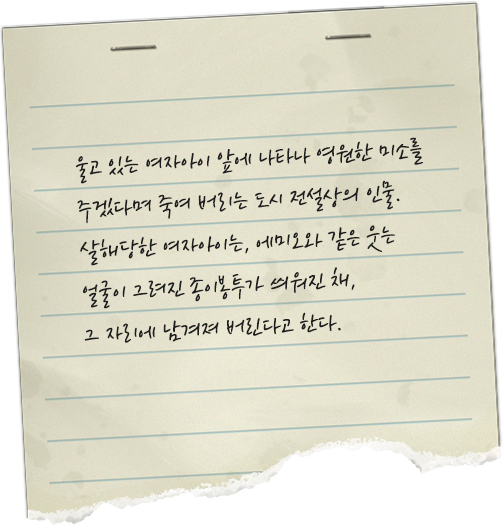 울고 있는 여자아이 앞에 나타나 영원한 미소를
주겠다며 죽여 버리는 도시 전설상의 인물.
살해당한 여자아이는, 에미오와 같은 웃는
얼굴이 그려진 종이봉투가 씌워진 채,
그 자리에 남겨져 버린다고 한다.